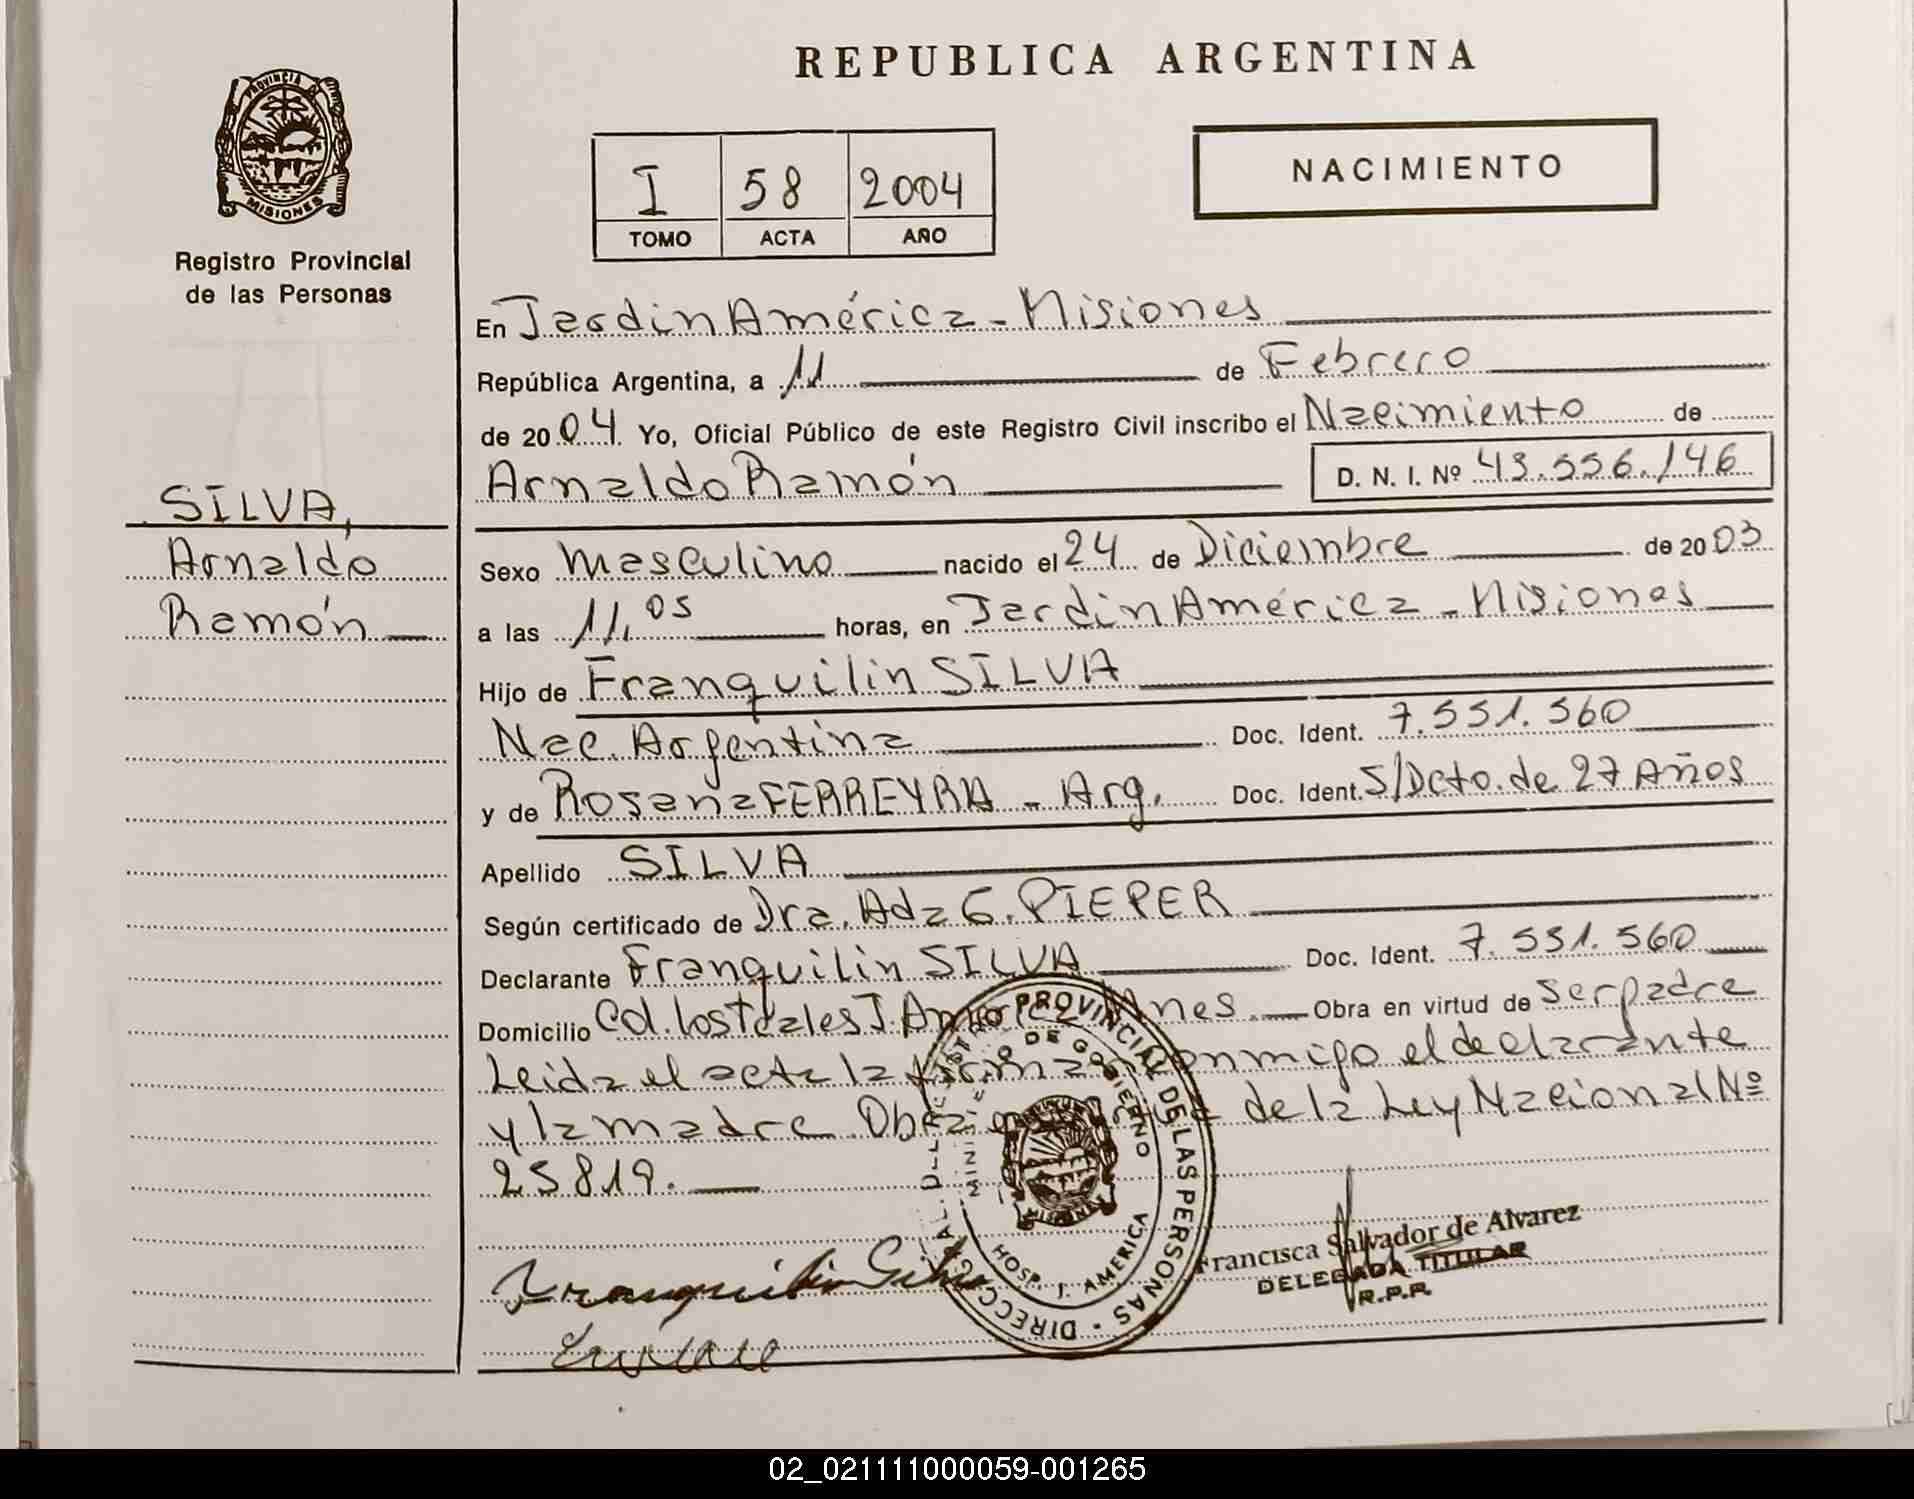 REPUBLICA ARGENTINA
PROVINCIA DE MISIONES
Registro Provincial
de las Personas
I 58 2004
TOMO ACTA AÑO
NACIMIENTO
SILVA,
Arnaldo
Ramón
En Jardin América - Misiones
República Argentina, a 11 de Febrero
de 2004. Yo, Oficial Público de este Registro Civil inscribo el Nacimiento de
Arnaldo Ramón D. N. I. Nº 43.556.146
Sexo Masculino nacido el 24 de Diciembre de 2003
a las 11,05 horas, en Jardin América - Misiones
Hijo de Franquilin SILVA
Nac. Argentina Doc. Ident. 7.551.560
y de Rosana FERREYRA - Arg. Doc. Ident. S/Dcto. de 27 Años
Apellido SILVA
Según certificado de Dra. Ada G. PIEPER
Declarante Franquilin SILVA Doc. Ident. 7.551.560
Domicilio Col. los Teales J. América Mnes. Obra en virtud de ser padre
Leida el acta la firman conmigo el declarante
y la madre. Obra en virtud de la Ley Nacional Nº
25819.
Franquilin Silva
PROVINCIAL DE LAS PERSONAS
MINISTERIO DE GOBIERNO
HOSP. J. AMERICA
MISIONES
Francisca Salvador de Alvarez
DELEGADA TITULAR
R.P.P.
02_021111000059-001265